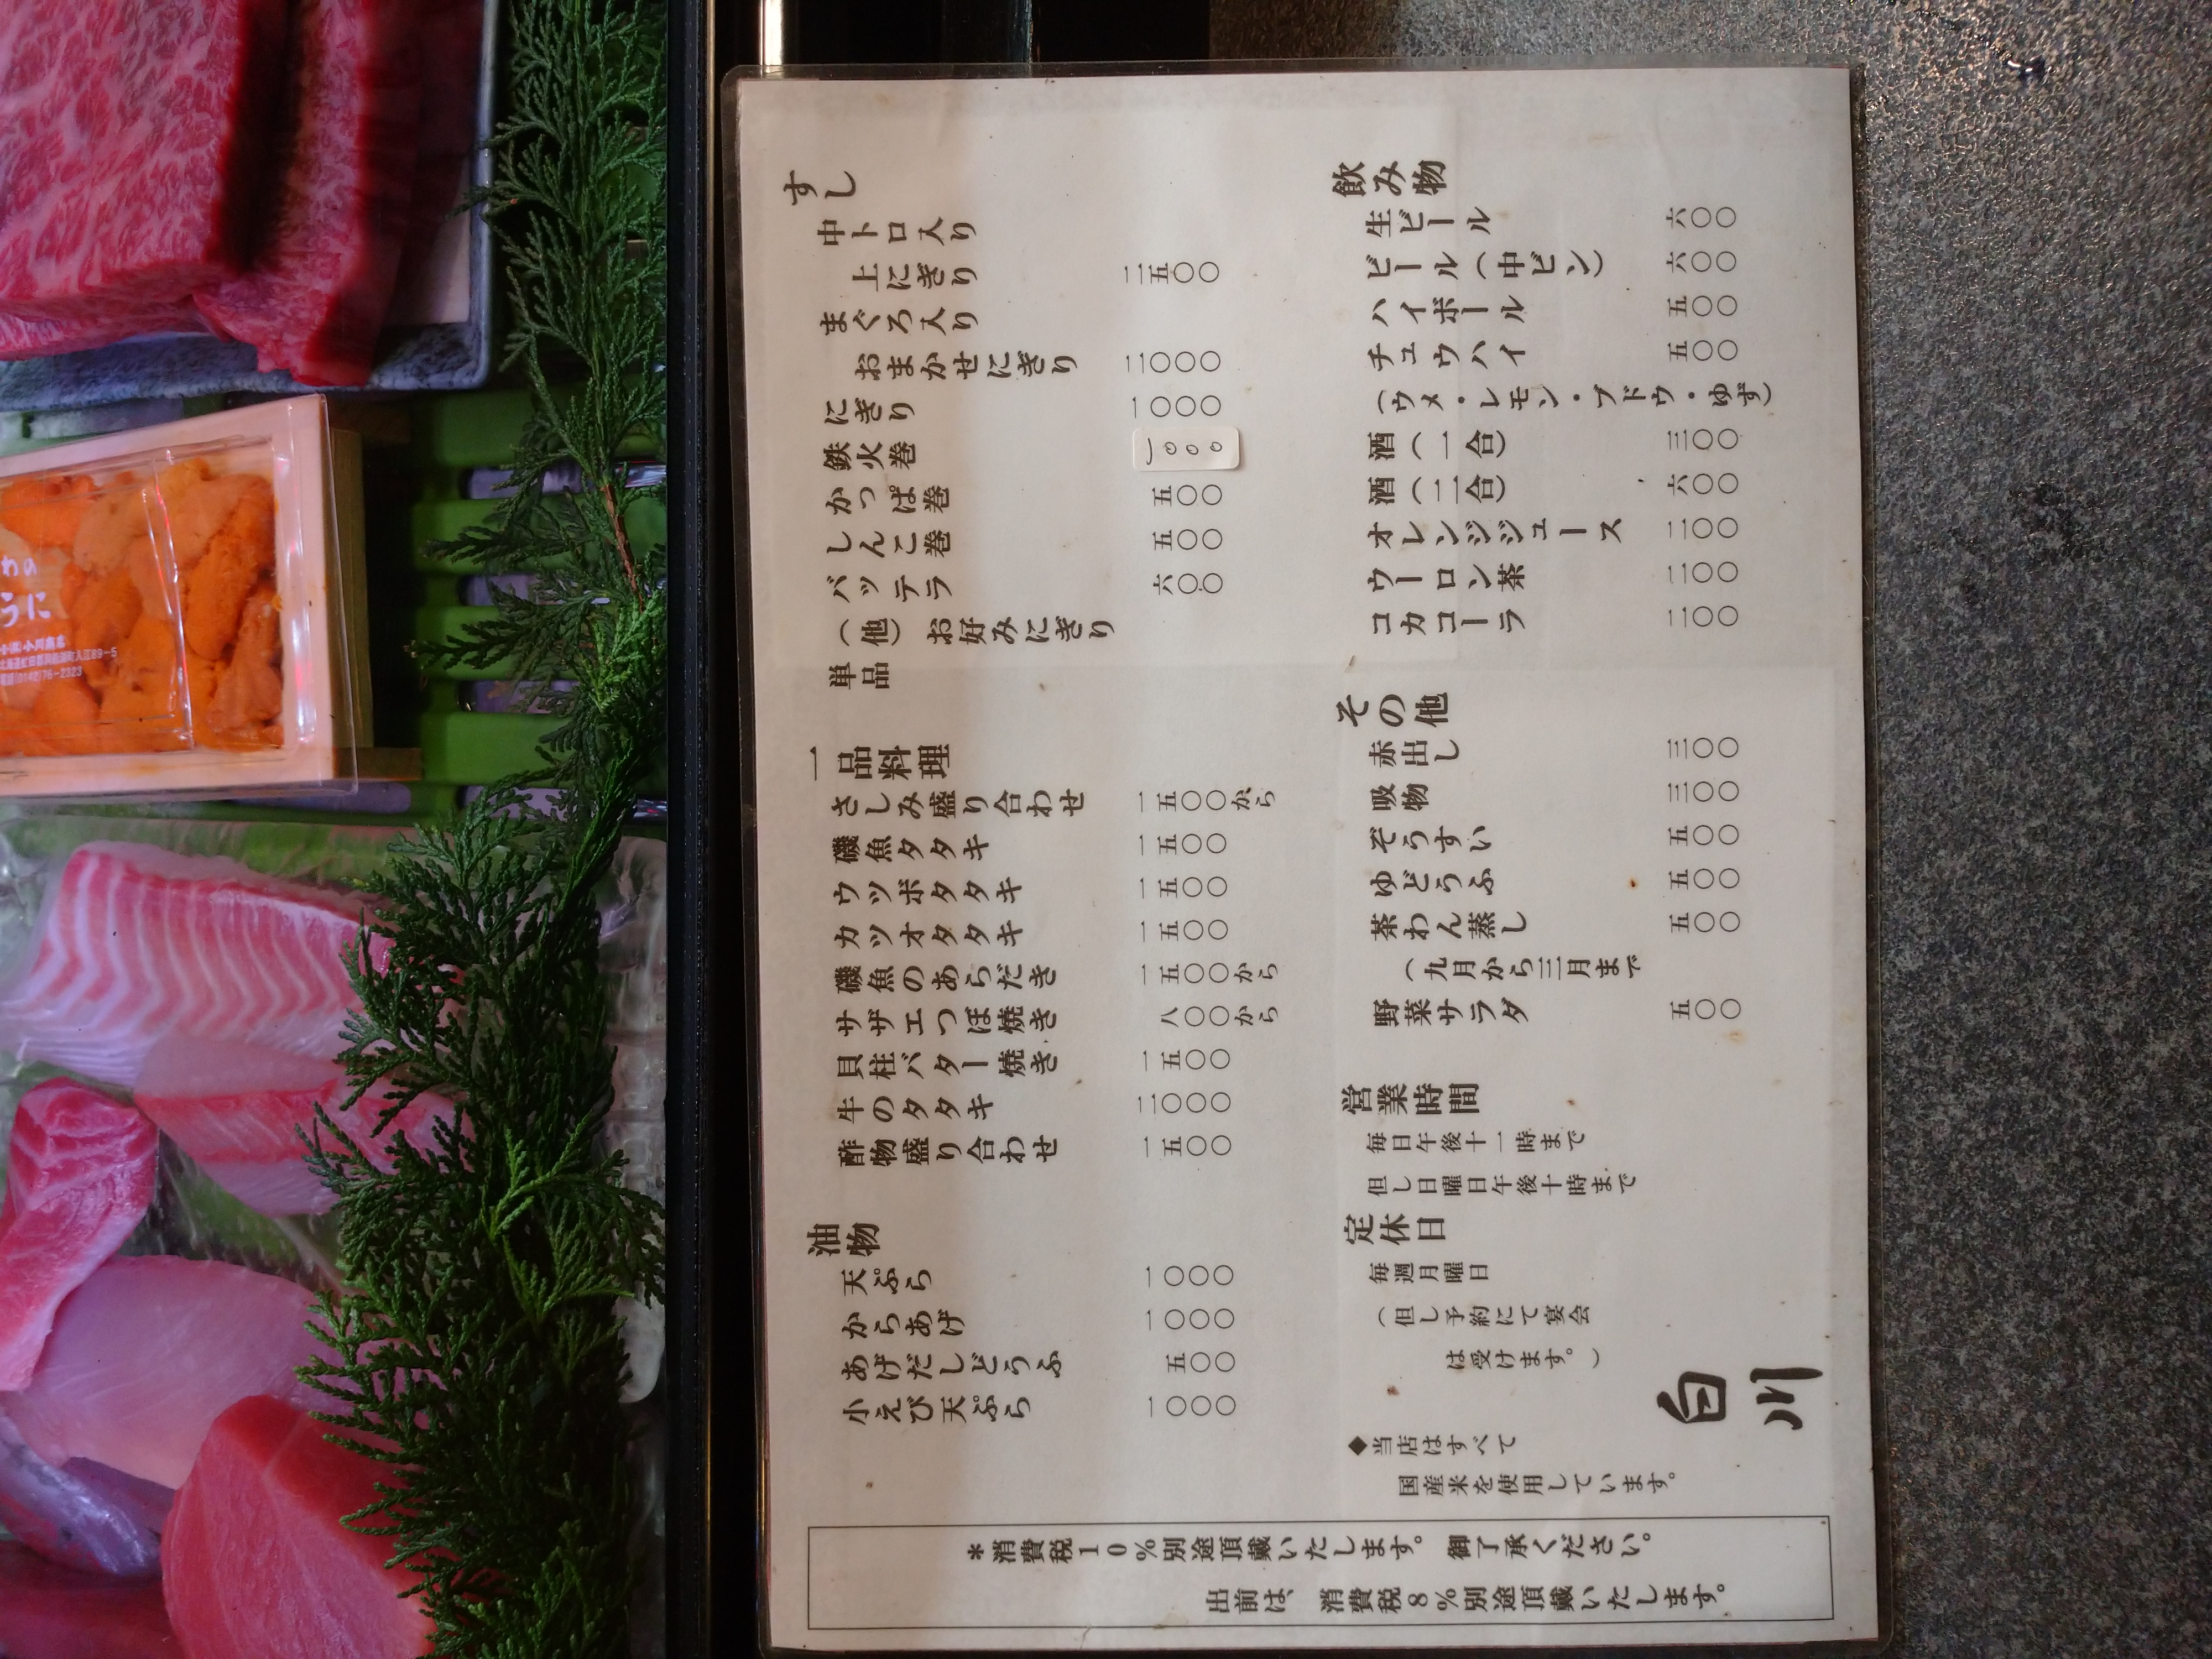 すし
中トロ入り
上にぎり 二五〇〇
まぐろ入り
おまかせにぎり 二〇〇〇
にぎり 一〇〇〇
鉄火巻 一〇〇〇
かっぱ巻 五〇〇
しんこ巻 五〇〇
バッテラ 六〇〇
(他) お好みにぎり
単品
一品料理
さしみ盛り合わせ 一五〇〇から
磯魚タタキ 一五〇〇
ウツボタタキ 一五〇〇
カツオタタキ 一五〇〇
磯魚のあらだき 一五〇〇から
サザエつぼ焼き 八〇〇から
貝柱バター焼き 一五〇〇
牛のタタキ 二〇〇〇
酢物盛り合わせ 一五〇〇
油物
天ぷら 一〇〇〇
からあげ 一〇〇〇
あげだしどうふ 五〇〇
小えび天ぷら 一〇〇〇
飲み物
生ビール 六〇〇
ビール(中ビン) 六〇〇
ハイボール 五〇〇
チュウハイ 五〇〇
(ウメ・レモン・ブドウ・ゆず)
酒(一合) 三〇〇
酒(二合) 六〇〇
オレンジジュース 二〇〇
ウーロン茶 二〇〇
コカコーラ 二〇〇
その他
赤出し 三〇〇
吸物 三〇〇
ぞうすい 五〇〇
ゆどうふ 五〇〇
茶わん蒸し 五〇〇
(九月から三月まで
野菜サラダ 五〇〇
営業時間
毎日午後十一時まで
但し日曜日午後十時まで
定休日
毎週月曜日
(但し予約にて宴会
は受けます。)
白川
◆当店はすべて
国産米を使用しています。
*消費税10%別途頂戴いたします。 御了承ください。
出前は、 消費税8%別途頂戴いたします。
わの
うに
小川商店
北海道虻田郡洞爺湖町入江89-5
電話(0142)76-2323